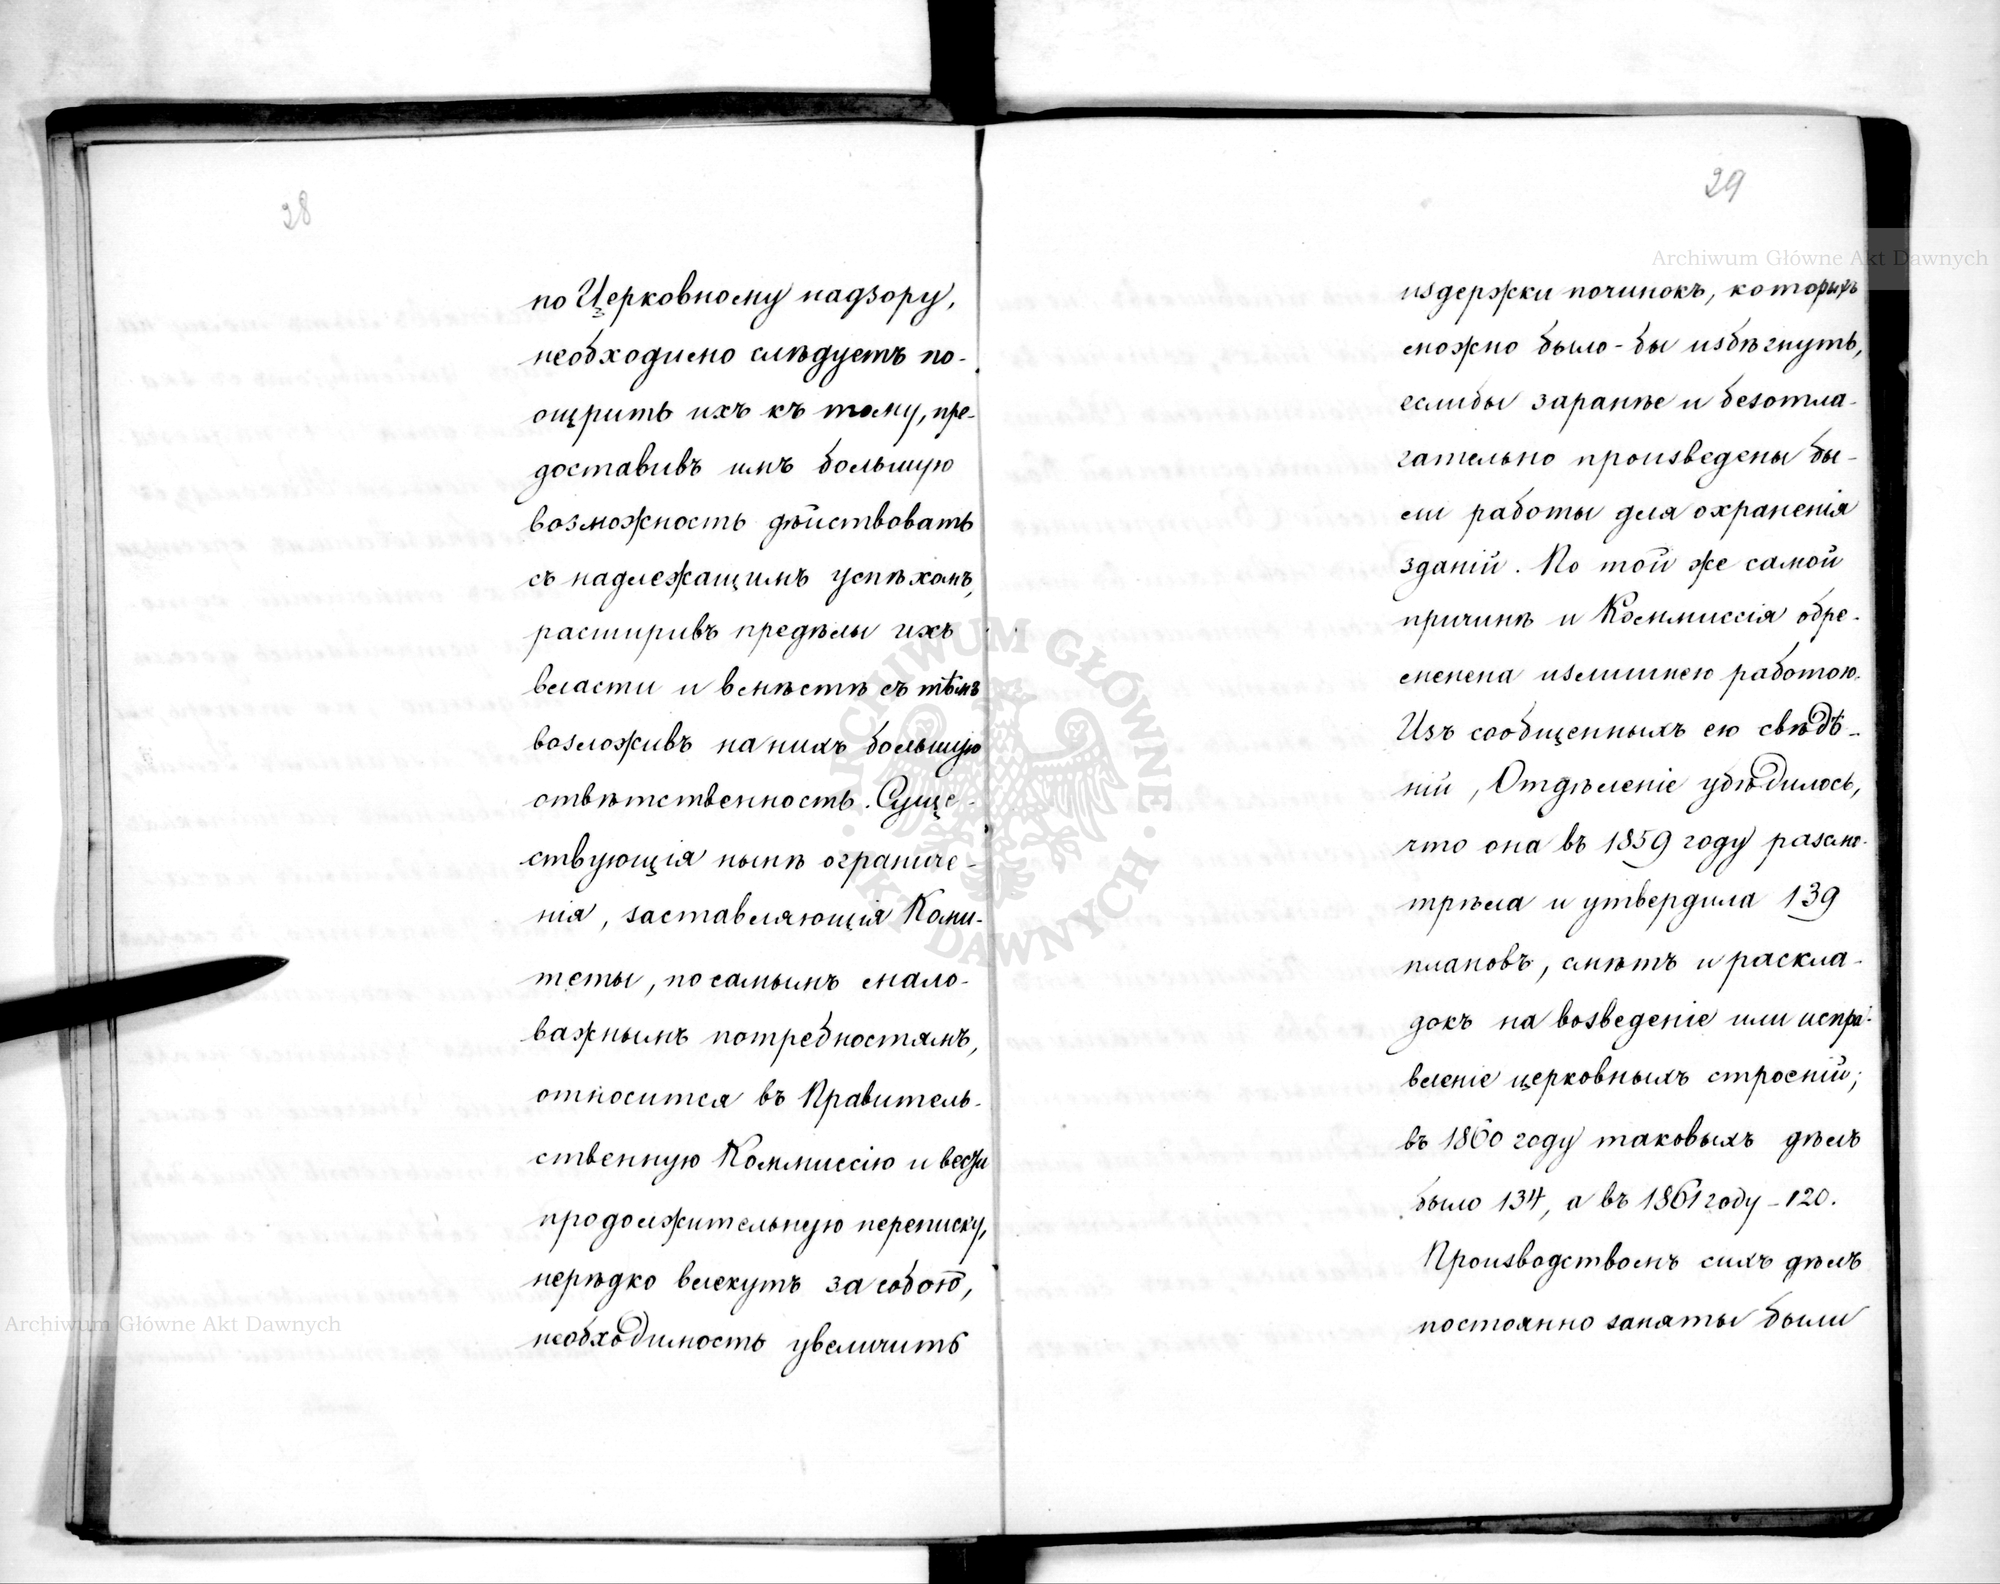 28
по Церковному надзору,
необходимо слѣдуетъ по-
ощрить ихъ къ тому, пре-
доставивъ имъ большую
возможность дѣйствовать
съ надлежащимъ успѣхомъ,
расширивъ предѣлы ихъ
власти и вмѣстѣ съ тѣмъ
возложивъ на нихъ большую
отвѣтственность. Суще-
ствующія нынѣ ограниче-
нія, заставляющія Коми-
теты, по самымъ мало-
важнымъ потребностямъ,
относится въ Правитель-
ственную Коммиссію и вести
продолжительную переписку,
нерѣдко влекутъ за собою,
необходимость увеличить
29
издержки починокъ, которыхъ
можно было-бы избѣгнуть,
еслибы заранѣе и безотла-
гательно произведены бы-
ли работы для охраненія
зданій. По той же самой
причинѣ и Коммиссія обре-
менена излишнею работою.
Изъ сообщенныхъ ею свѣдѣ-
ній, Отдѣленіе убѣдилось,
что она въ 1859 году разсмо-
трѣла и утвердила 139
плановъ, смѣтъ и раскла-
докъ на возведеніе или испра-
вленіе церковныхъ строеній;
въ 1860 году таковыхъ дѣлъ
было 134, а въ 1861 году - 120.
Производствомъ сихъ дѣлъ
постоянно заняты были
Archiwum Główne Akt Dawnych
Archiwum Główne Akt Dawnych
ARCHIWUM GŁÓWNE · AKT DAWNYCH ·